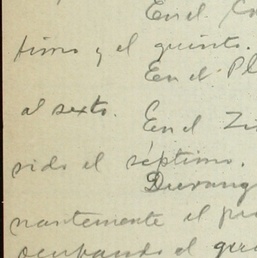 En el Co
timo y el quinto.
En el Pl
al sexto.
En el Zi
sido el séptimo.
Durang
nantemente el pri
ocupando el qui